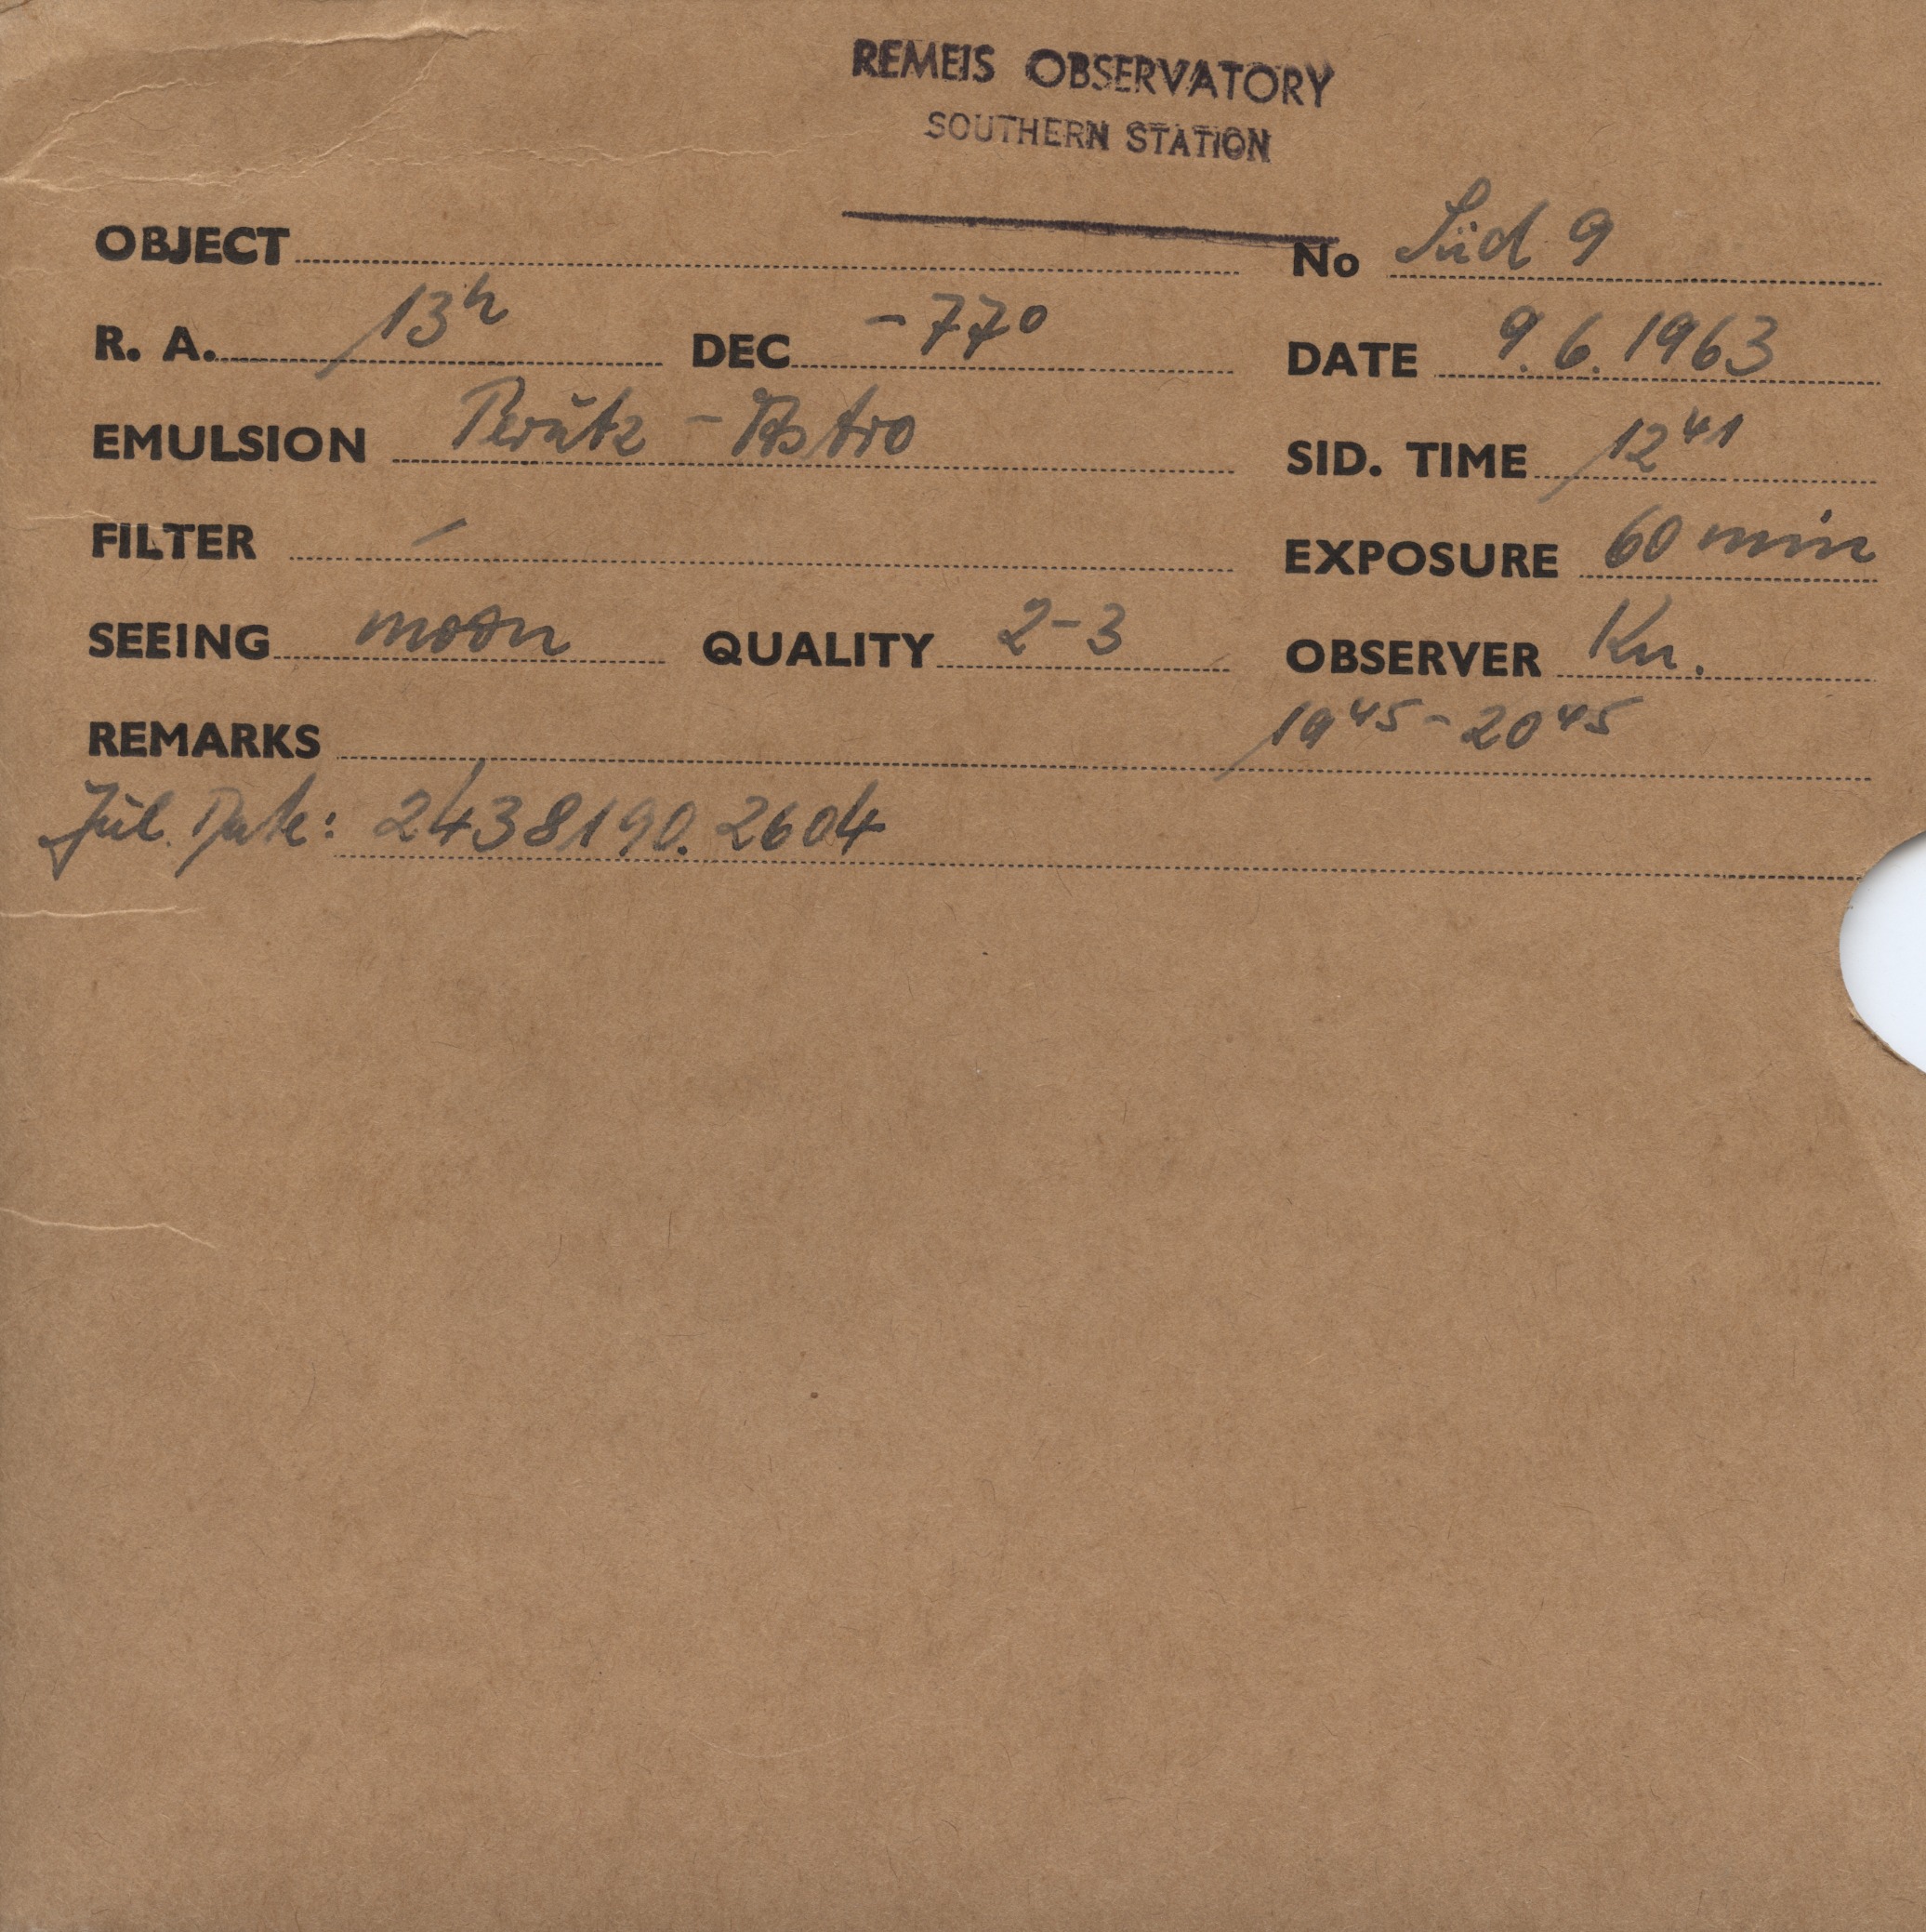 REMEIS OBSERVATORY
SOUTHERN STATION
OBJECT No Süd 9
R. A. 13h DEC -77° DATE 9.6.1963
EMULSION Perutz - Astro SID. TIME 12 41
FILTER - EXPOSURE 60 min
SEEING moon QUALITY 2-3 OBSERVER Kn.
REMARKS 19 45 - 20 45
Jul. Date: 2438190.2604